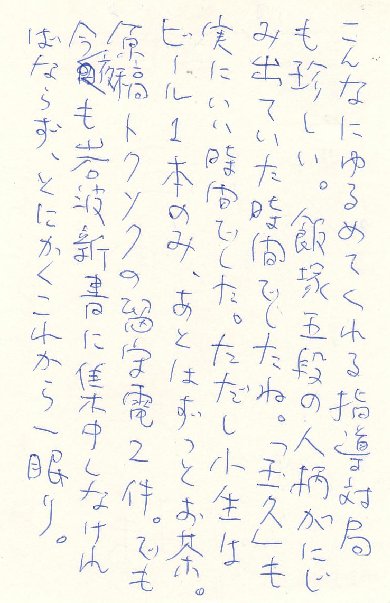 こんなにゆるめてくれる指導対局
も珍しい。飯塚五段の人柄がにじ
み出ていた時間でしたね。「玉久」も
実にいい時間でした。ただし小生は
ビール1本のみ、あとはずっとお茶。
原稿トクソクの留守電2件。でも
今夜も岩波新書に集中しなけれ
ばならず、とにかくこれから一眠り。